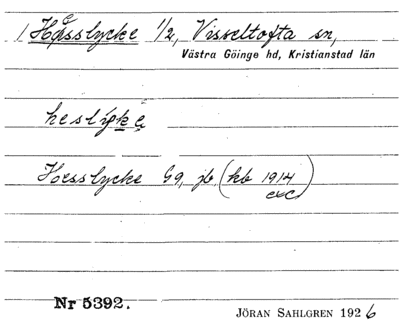 1 Hæsslycke 1/2, Visseltofta sn,
Västra Göinge hd, Kristianstad län
heslýkę
Hæsslycke Gg, jb, (kb 1914)
exc
Nr 5392.
JÖRAN SAHLGREN 1926